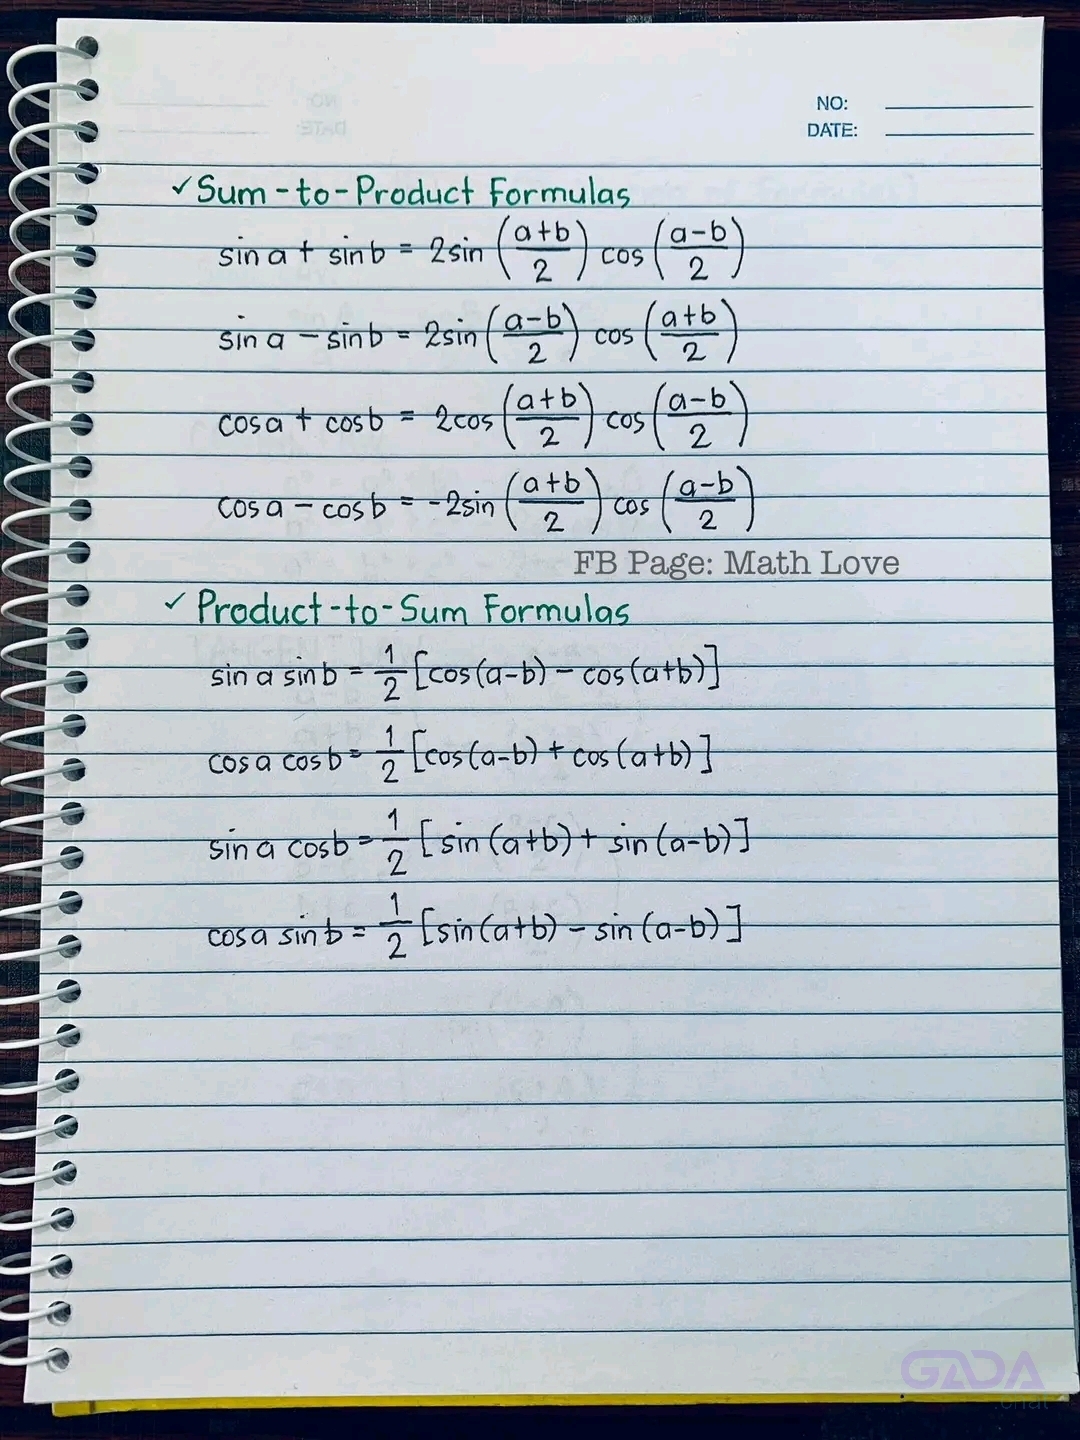 NO:
DATE:
✓ Sum-to-Product Formulas
sin a + sin b = 2sin ((a+b)/2) cos ((a-b)/2)
sin a - sin b = 2sin ((a-b)/2) cos ((a+b)/2)
cos a + cos b = 2cos ((a+b)/2) cos ((a-b)/2)
cos a - cos b = -2sin ((a+b)/2) cos ((a-b)/2)
FB Page: Math Love
✓ Product-to-Sum Formulas
sin a sin b = 1/2 [cos(a-b) - cos(a+b)]
cos a cos b = 1/2 [cos(a-b) + cos(a+b)]
sin a cos b = 1/2 [sin(a+b) + sin(a-b)]
cos a sin b = 1/2 [sin(a+b) - sin(a-b)]
GADA
.chat